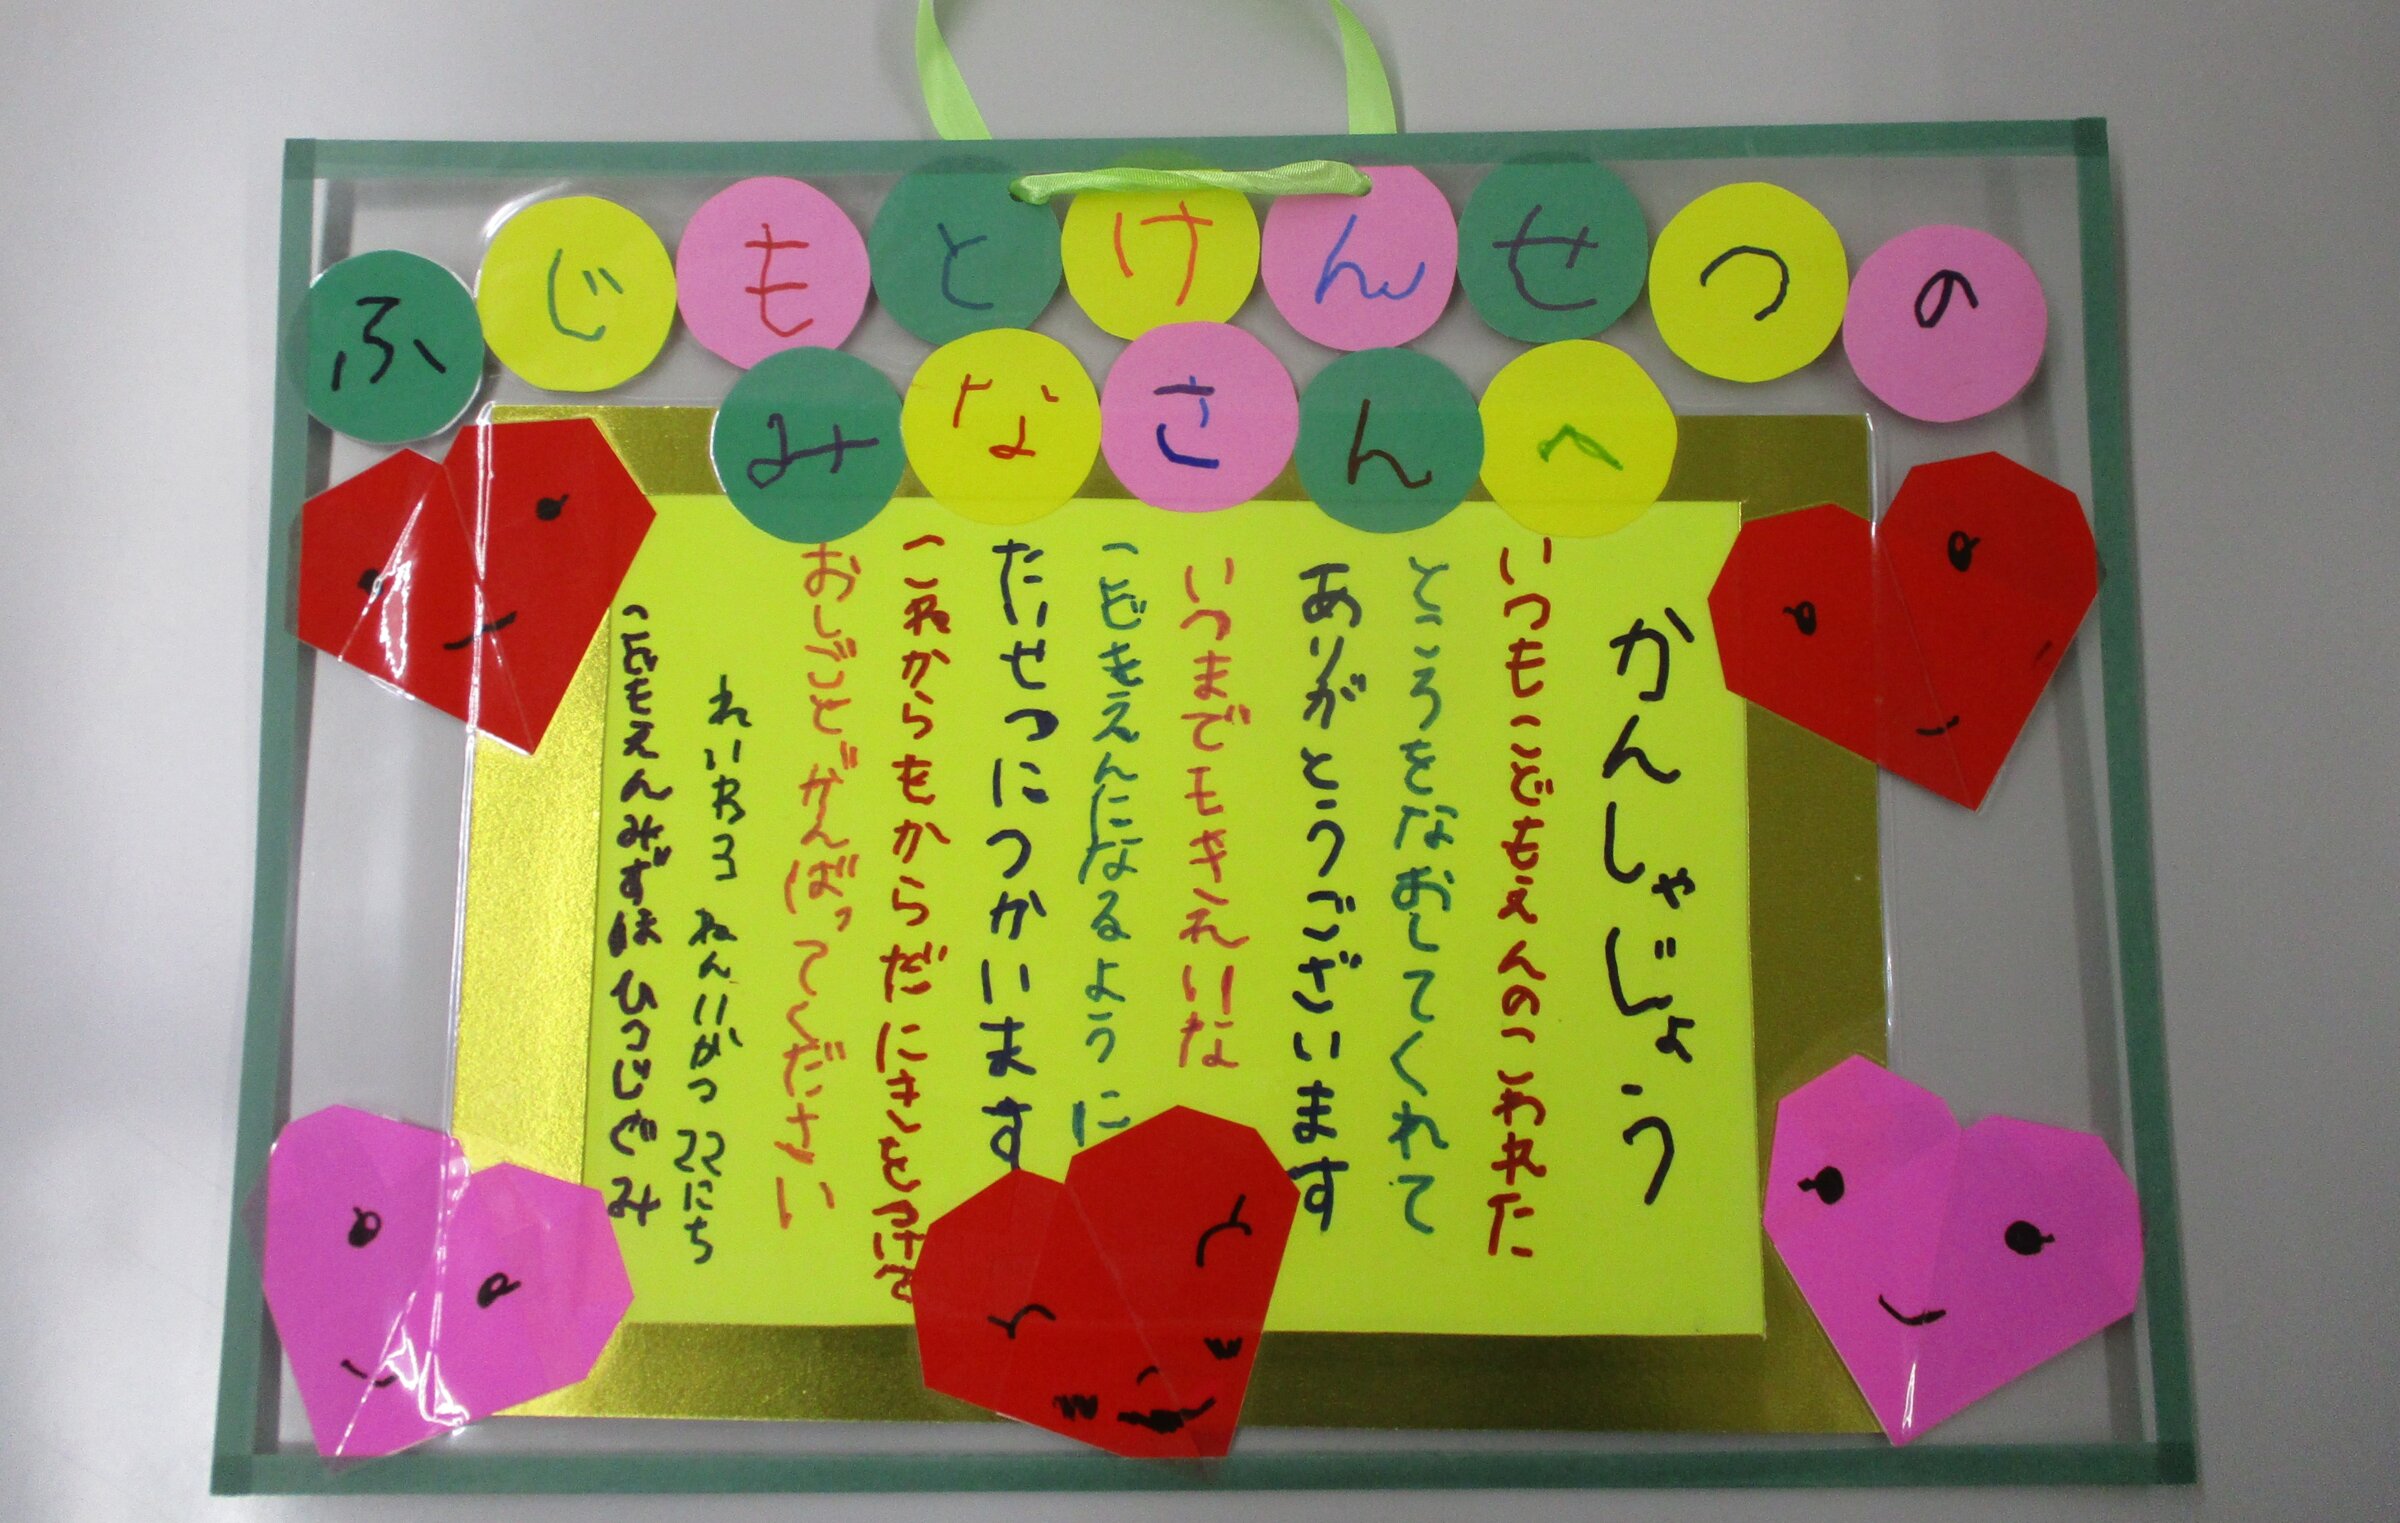 ふじもとけんせつの
みなさんへ
かんしゃじょう
いつもこどもえんのこわれた
ところをなおしてくれて
ありがとうございます
いつまでもきれいな
こどもえんになるように
たいせつにつかいます
これからもからだにきをつけて
おしごとがんばってください
れいわ3ねん11がつ22にち
こどもえんみずほひつじぐみ